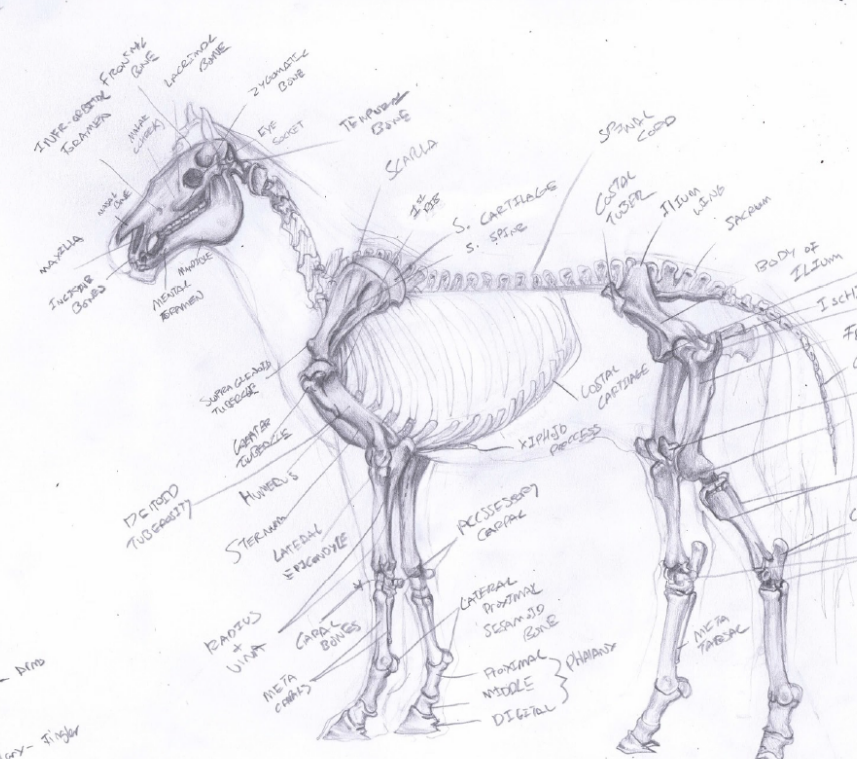 FRONTAL
BONE
LACRIMAL
BONE
ZYGOMATIC
BONE
INFR-ORBITAL
FORAMEN
MALAR
(CHEEK)
EYE
SOCKET
TEMPORAL
BONE
NASAL
BONE
SCAPLA
1st
RIB
S. CARTILAGE
S. SPINE
SPINAL
CORD
COSTAL
TUBER
ILIUM
WING
SACRUM
BODY OF
ILIUM
ISCHI
MAXILLA
INCISIVE
BONES
MANDIBLE
MENTAL
FORAMEN
SUPRAGLENOID
TUBERCLE
GREATER
TUBERCLE
COSTAL
CARTILAGE
XIPHOID
PROCESS
DELTOID
TUBEROSITY
HUMERUS
STERNUM
LATERAL
EPICONDYLE
ACCESSERY
CARPAL
RADIUS
+
ULNA
CARPAL
BONES
META
CARPALS
LATERAL
PROXIMAL
SESAMOID
BONE
PROXIMAL
MIDDLE
DIGITAL
PHALANX
META
TARSAL